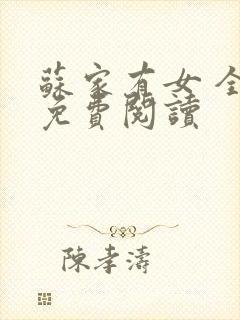 蘇家有女 全
免費閱讀
陳孝濤